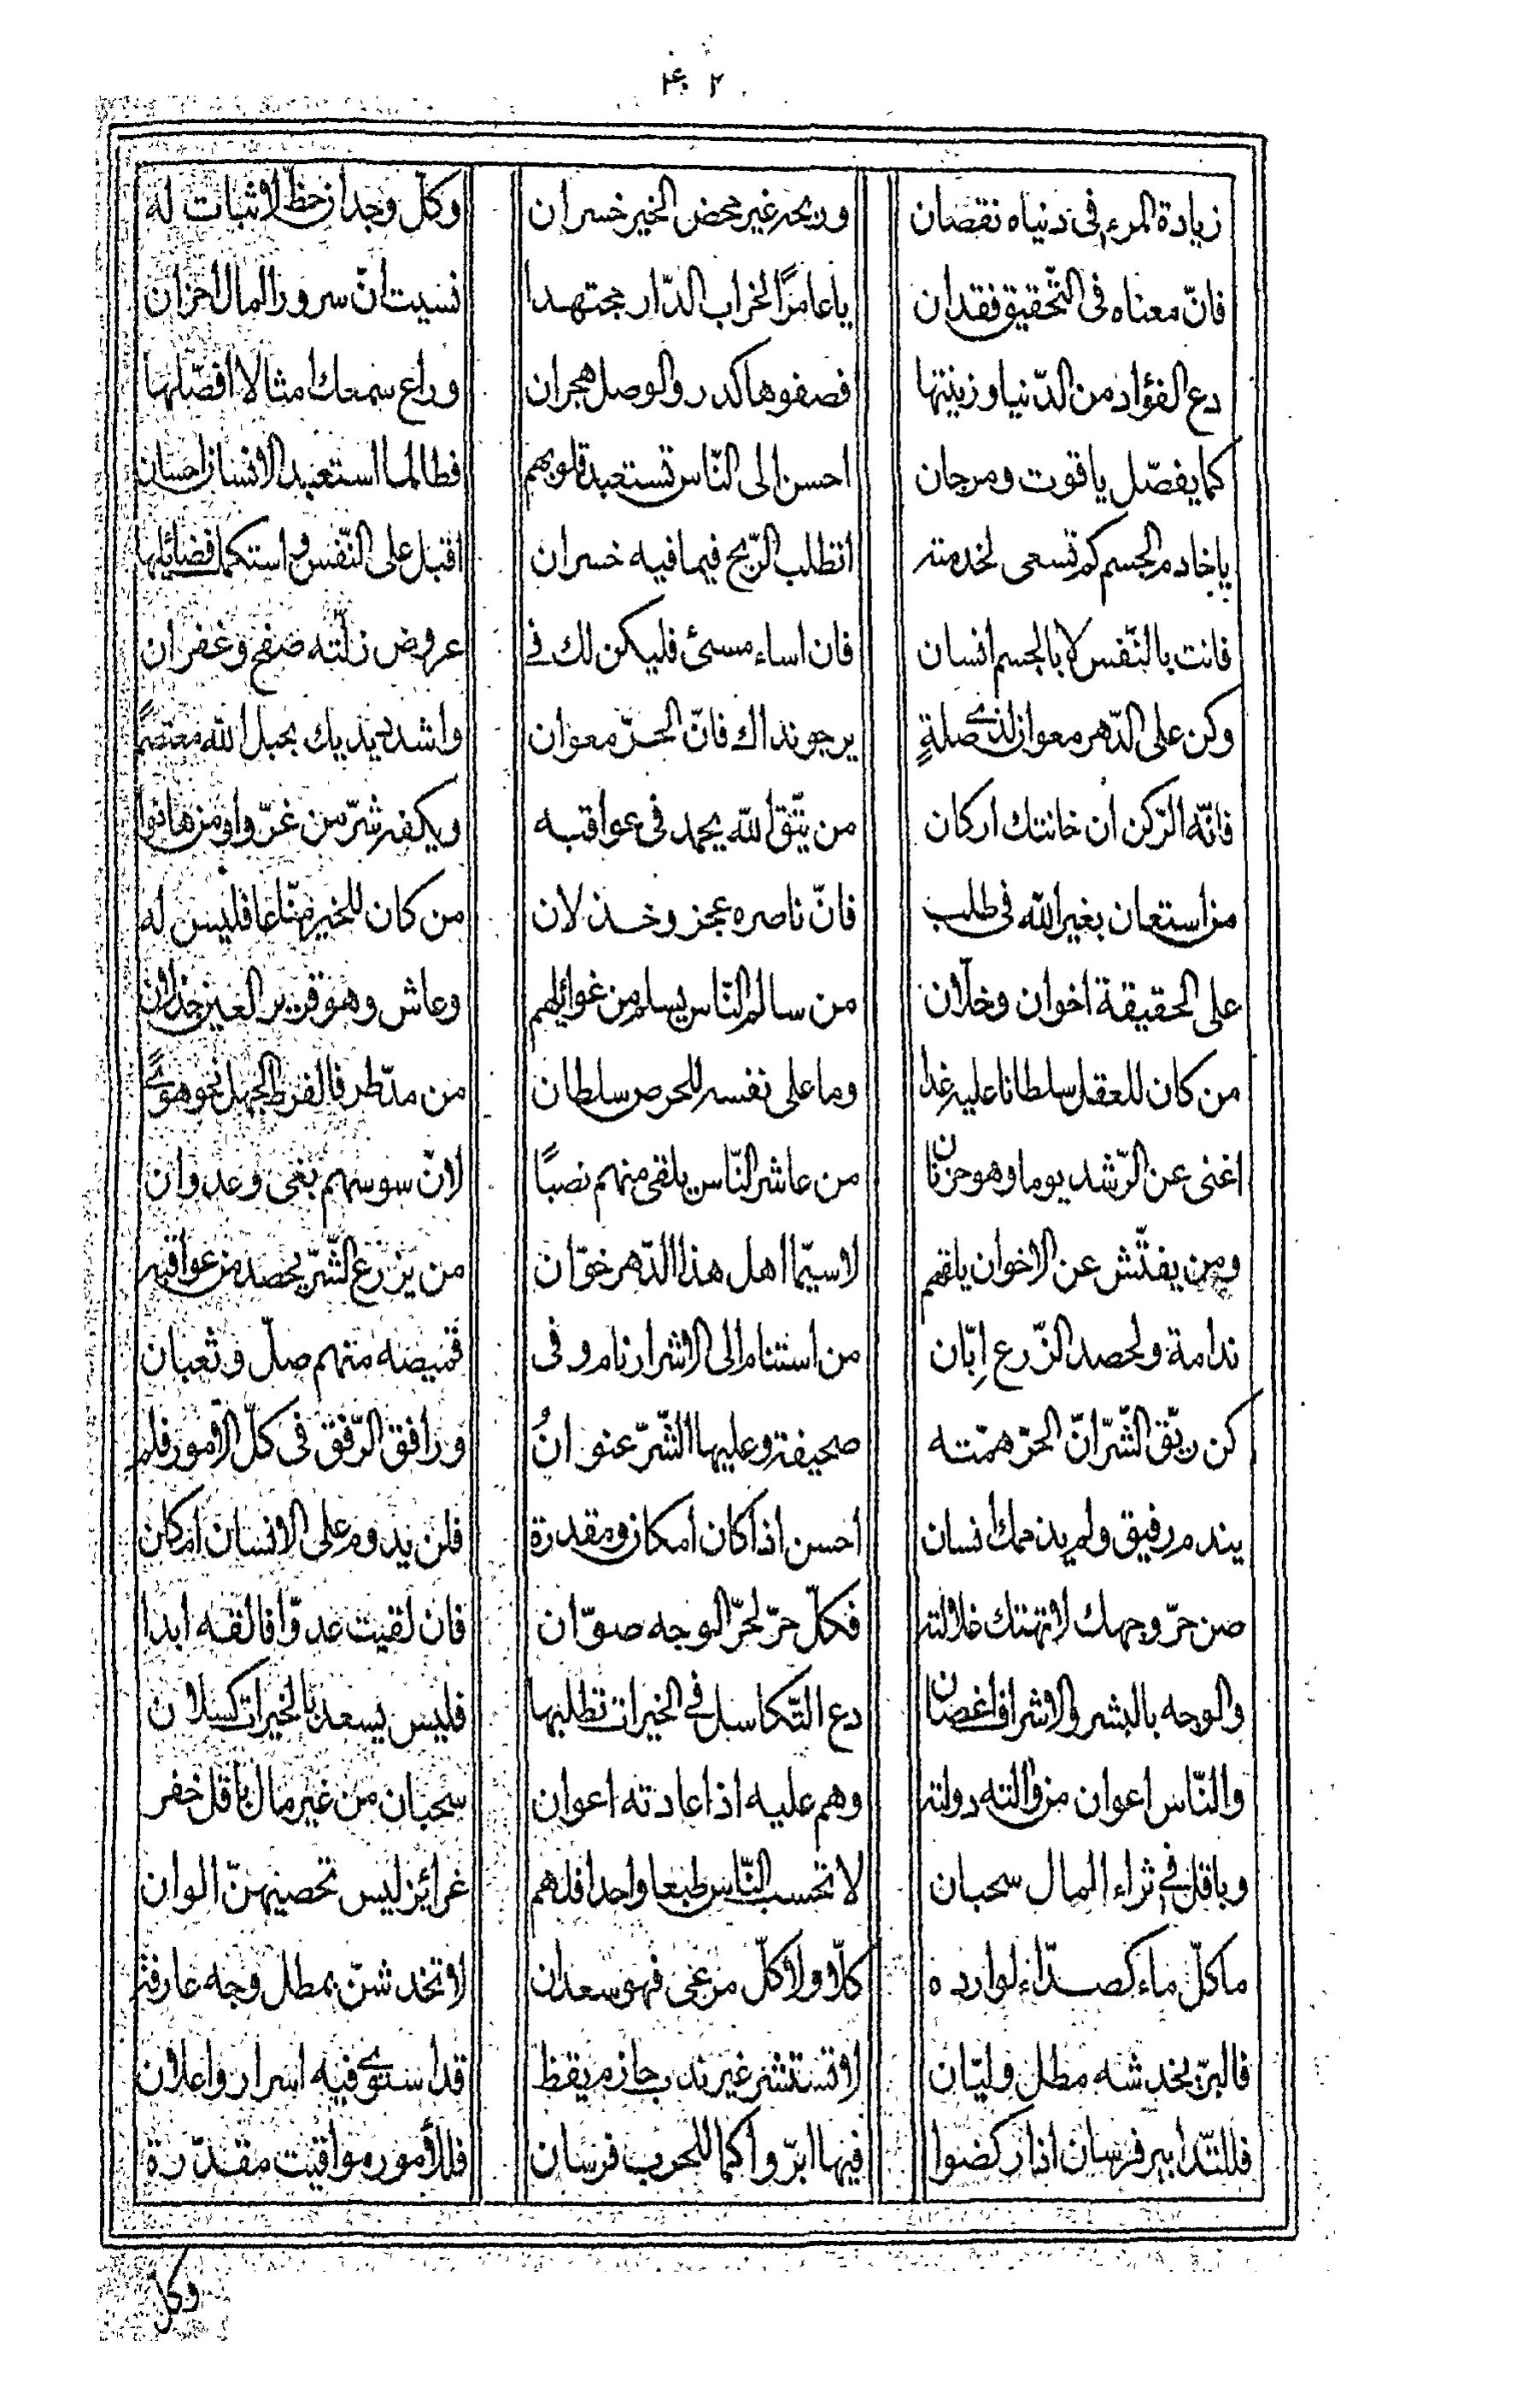 ۴۰۲
زيادة المرء فى دنياه نقصان وربحه غير محض الخير خسران وكلّ وجدان حظّ لا ثبات له
فانّ معناه فى التّحقيق فقدان ياعامرًا لخراب الدّار مجتهدا نسيت انّ سرور المال احزان
دع الفؤاد من الدّنيا وزينتها فصفوها كدر والوصل هجران وراع سمعك امثالا افصّلها
كما يفصّل ياقوت ومرجان احسن الى النّاس تستعبد قلوبهم فطالما استعبد الانسان احسان
ياخادم الجسم كم تسعى لخدمته اتطلب الرّبح فيما فيه خسران اقبل على النّفس واستكمل فضائلها
فانت بالنّفس لا بالجسم انسان فان اساء مسئ فليكن لك فى عروض زلّته صفح وغفران
وكن على الدّهر معوانا لذى صلةٍ يرجو نداك فانّ الحرّ معوان واشدد يديك بحبل الله معتصمًا
فانّه الرّكن ان خانتك اركان من يتّق الله يحمد فى عواقبه ويكفه شرّ من عزّوا ومن هانوا
من استعان بغير الله فى طلب فانّ ناصره عجز وخذلان من كان للخير منّاعا فليس له
على الحقيقة اخوان وخلّان من سالم النّاس يسلم من غوائلهم وعاش وهو قرير العين جذلان
من كان للعقل سلطانا عليه غدا وما على نفسه للحرص سلطان من مدّ طرفا لفرط الجهل نحو هوىً
اغنى عن الرّشد يوما وهو حزنان من عاشر النّاس يلقى منهم نصبًا لانّ سوسهم بغى وعدوان
ومن يفتّش عن الاخوان يلقهم لاسيّما اهل هذا الدّهر خوّان من يزرع الشّرّ يحصد من عواقبه
ندامة ولحصد الزّرع اِبّان من استنام الى الاشرار نام وفى قميصه منهم صلّ وثعبان
كن ريّق الشّر انّ الحرّ همّته صحيفة وعليها الشّرّ عنوانُ ورافق الرّفق فى كلّ الأمور فلم
يندم رفيق ولم يذممك انسان احسن اذا كان امكان ومقدرة فلن يدوم على الانسان امكان
صن حرّ وجهك لا تهتك غلالته فكلّ حرّ لحرّ الوجه صوّان فان لقيت عدوّا فالقه ابدا
والوجه بالبشر والاشراق غضّان دع التّكاسل فى الخيرات تطلبها فليس يسعد بالخيرات كسلان
والنّاس اعوان من والته دولته وهم عليه اذا عادته اعوان سحبان من غير مال باقل خفر
وباقل فى ثراء المال سحبان لا تحسب النّاس طبعا واحدا فلهم غرائز ليس تحصيهنّ الوان
ماكلّ ماء كصدّاء لوارده كلّا ولا كلّ مرعى فهو سعدان لا تخدشنّ بمطل وجه عارفة
فالبرّ يخدشه مطل وليّان لا تستشر غير ندب حازم يقظ قد استوى فيه اسرار واعلان
فللتّدابير فرسان اذا ركضوا فيها ابرّوا كما للحرب فرسان فللأمور مواقيت مقدّرة
وكلّ